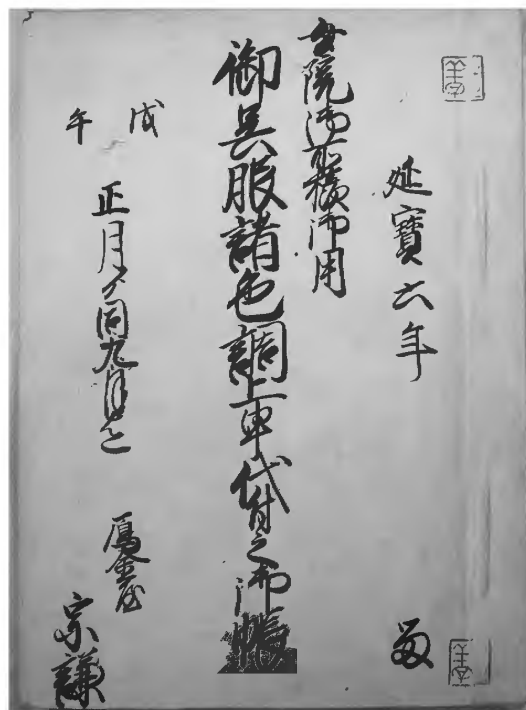 延寳六年
女院御所様御用
御呉服諸色調上申代付之御帳
戊
午
正月ゟ同九月迄
雁金屋
宗謙